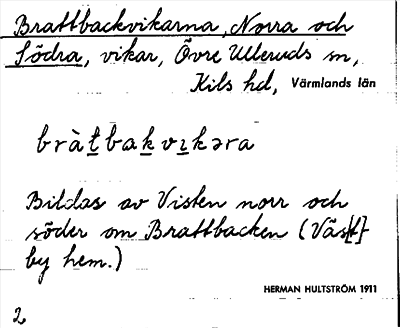 Brattbackvikarna, Norra och
Södra, vikar, Övre Ulleruds sn,
Kils hd, Värmlands län
bràt̲bak̲vı̲kəra
Bildas av Visten norr och
söder om Brattbacken (Väs[t]-
by hem.)
HERMAN HULTSTRÖM 1911
2